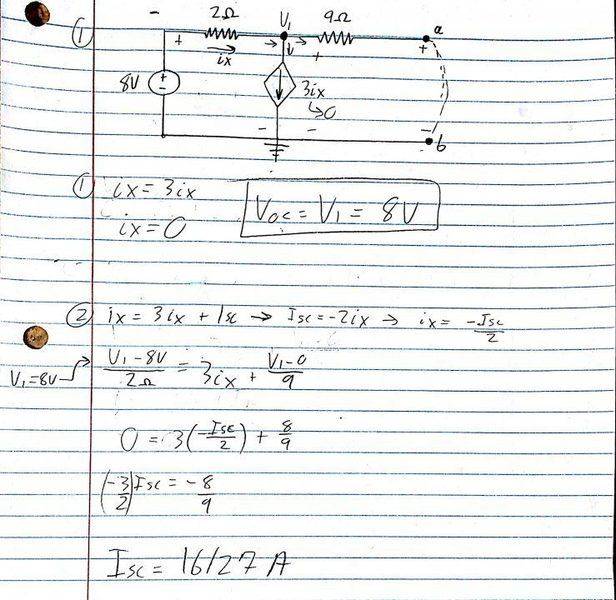 ① 2Ω V₁ 9Ω a
- + ix + +
8V + - 3ix
↳0
- - - b
① ix = 3ix
ix = 0
Voc = V₁ = 8V
② ix = 3ix + Isc → Isc = -2ix → ix = -Isc/2
V₁=8V (V₁-8V)/2Ω = 3ix + (V₁-0)/9
0 = 3(-Isc/2) + 8/9
(-3/2)Isc = -8/9
Isc = 16/27 A